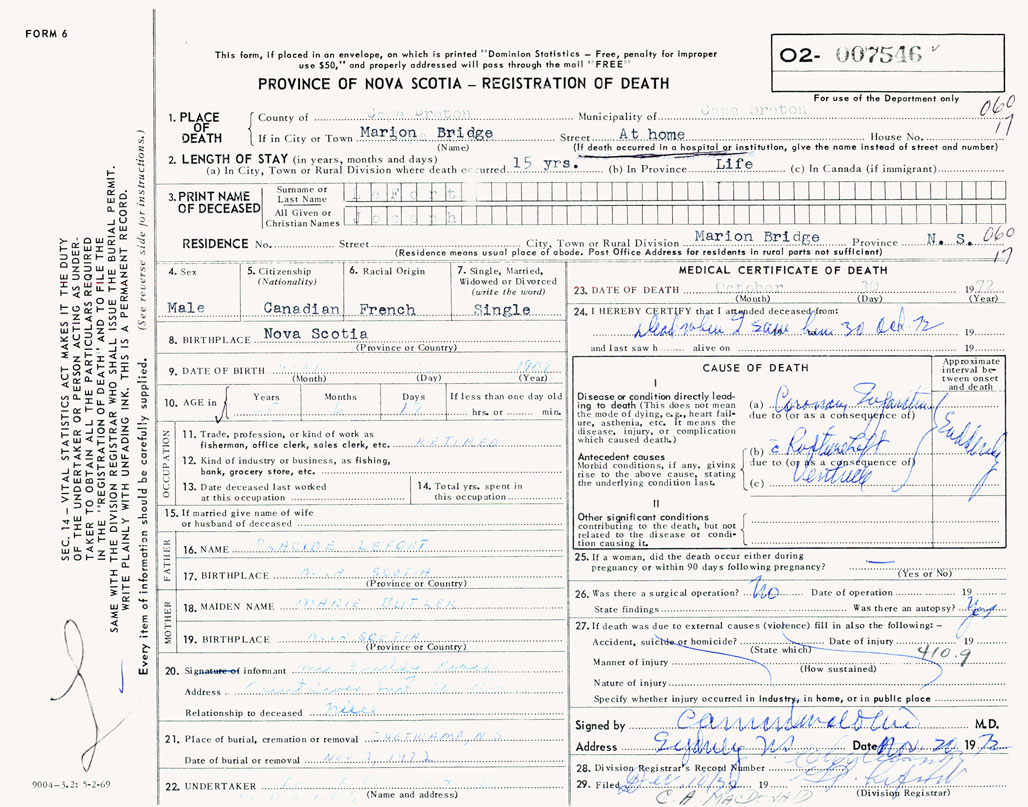 FORM 6
This form, if placed in an envelope, on which is printed "Dominion Statistics – Free, penalty for improper
use $50," and properly addressed will pass through the mail "FREE"
PROVINCE OF NOVA SCOTIA – REGISTRATION OF DEATH
O2- 007546
For use of the Department only
060
17
1. PLACE OF DEATH
County of Cape Breton Municipality of Cape Breton
If in City or Town Marion Bridge Street At home House No.
(Name) (If death occurred in a hospital or institution, give the name instead of street and number)
2. LENGTH OF STAY (in years, months and days)
(a) In City, Town or Rural Division where death occurred 15 yrs. (b) In Province Life (c) In Canada (if immigrant)
3. PRINT NAME OF DECEASED
Surname or Last Name LeFort
All Given or Christian Names Joseph
RESIDENCE No. Street City, Town or Rural Division Marion Bridge Province N. S. 060
17
(Residence means usual place of abode. Post Office Address for residents in rural parts not sufficient)
4. Sex
Male
5. Citizenship
(Nationality)
Canadian
6. Racial Origin
French
7. Single, Married,
Widowed or Divorced
(write the word)
Single
8. BIRTHPLACE Nova Scotia
(Province or Country)
9. DATE OF BIRTH
(Month) (Day) (Year)
10. AGE in
Years Months Days If less than one day old
6 17 hrs. or min.
OCCUPATION
11. Trade, profession, or kind of work as
fisherman, office clerk, sales clerk, etc. RETIRED
12. Kind of industry or business, as fishing,
bank, grocery store, etc.
13. Date deceased last worked
at this occupation
14. Total yrs. spent in
this occupation
15. If married give name of wife
or husband of deceased
FATHER
16. NAME PLACIDE LEFORT
17. BIRTHPLACE NOVA SCOTIA
(Province or Country)
MOTHER
18. MAIDEN NAME MARIE BUTLER
19. BIRTHPLACE NOVA SCOTIA
(Province or Country)
20. Signature of informant Mrs
Address
Relationship to deceased Niece
21. Place of burial, cremation or removal CHETICAMP, N.S.
Date of burial or removal NOV 1972
22. UNDERTAKER
(Name and address)
MEDICAL CERTIFICATE OF DEATH
23. DATE OF DEATH October 30 1972
(Month) (Day) (Year)
24. I HEREBY CERTIFY that I attended deceased from:
Dead when I saw him 30 Oct 72 19
and last saw h alive on 19
CAUSE OF DEATH
Approximate interval between onset and death
I
Disease or condition directly lead-
ing to death (This does not mean
the mode of dying, e.g., heart fail-
ure, asthenia, etc. It means the
disease, injury, or complication
which caused death.)
(a) Coronary Infarction
due to (or as a consequence of)
Suddenly
Antecedent causes
Morbid conditions, if any, giving
rise to the above cause, stating
the underlying condition last.
(b) c̄ Rupture Left
due to (or as a consequence of)
(c) Ventricle
II
Other significant conditions
contributing to the death, but not
related to the disease or condi-
tion causing it.
25. If a woman, did the death occur either during
pregnancy or within 90 days following pregnancy?
(Yes or No)
26. Was there a surgical operation? No Date of operation 19
State findings Was there an autopsy? Yes
27. If death was due to external causes (violence) fill in also the following: –
Accident, suicide or homicide? Date of injury 19
(State which) 410.9
Manner of injury
(How sustained)
Nature of injury
Specify whether injury occurred in industry, in home, or in public place
Signed by M.D.
Address Sydney NS Date Nov. 20 1972
28. Division Registrar's Record Number
29. Filed Dec 19
C. A MACDONALD (Division Registrar)
SEC. 14 – VITAL STATISTICS ACT MAKES IT THE DUTY
OF THE UNDERTAKER OR PERSON ACTING AS UNDER-
TAKER TO OBTAIN ALL THE PARTICULARS REQUIRED
IN THE "REGISTRATION OF DEATH" AND TO FILE THE
SAME WITH THE DIVISION REGISTRAR WHO SHALL ISSUE THE BURIAL PERMIT.
WRITE PLAINLY WITH UNFADING INK. THIS IS A PERMANENT RECORD.
Every item of information should be carefully supplied. (See reverse side for instructions.)
9004-3.2: 5-2-69